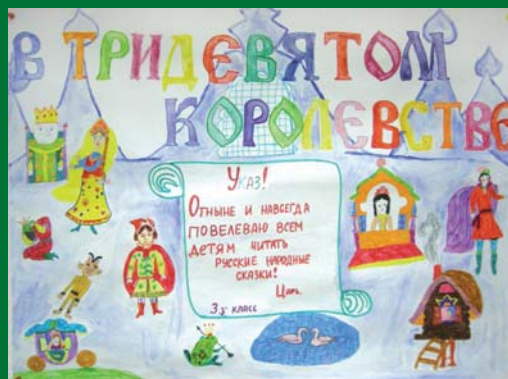 В ТРИДЕВЯТОМ
КОРОЛЕВСТВЕ
УКАЗ!
ОТНЫНЕ И НАВСЕГДА
ПОВЕЛЕВАЮ ВСЕМ
ДЕТЯМ ЧИТАТЬ
РУССКИЕ НАРОДНЫЕ
СКАЗКИ!
ЦАРЬ.
3 у КЛАСС